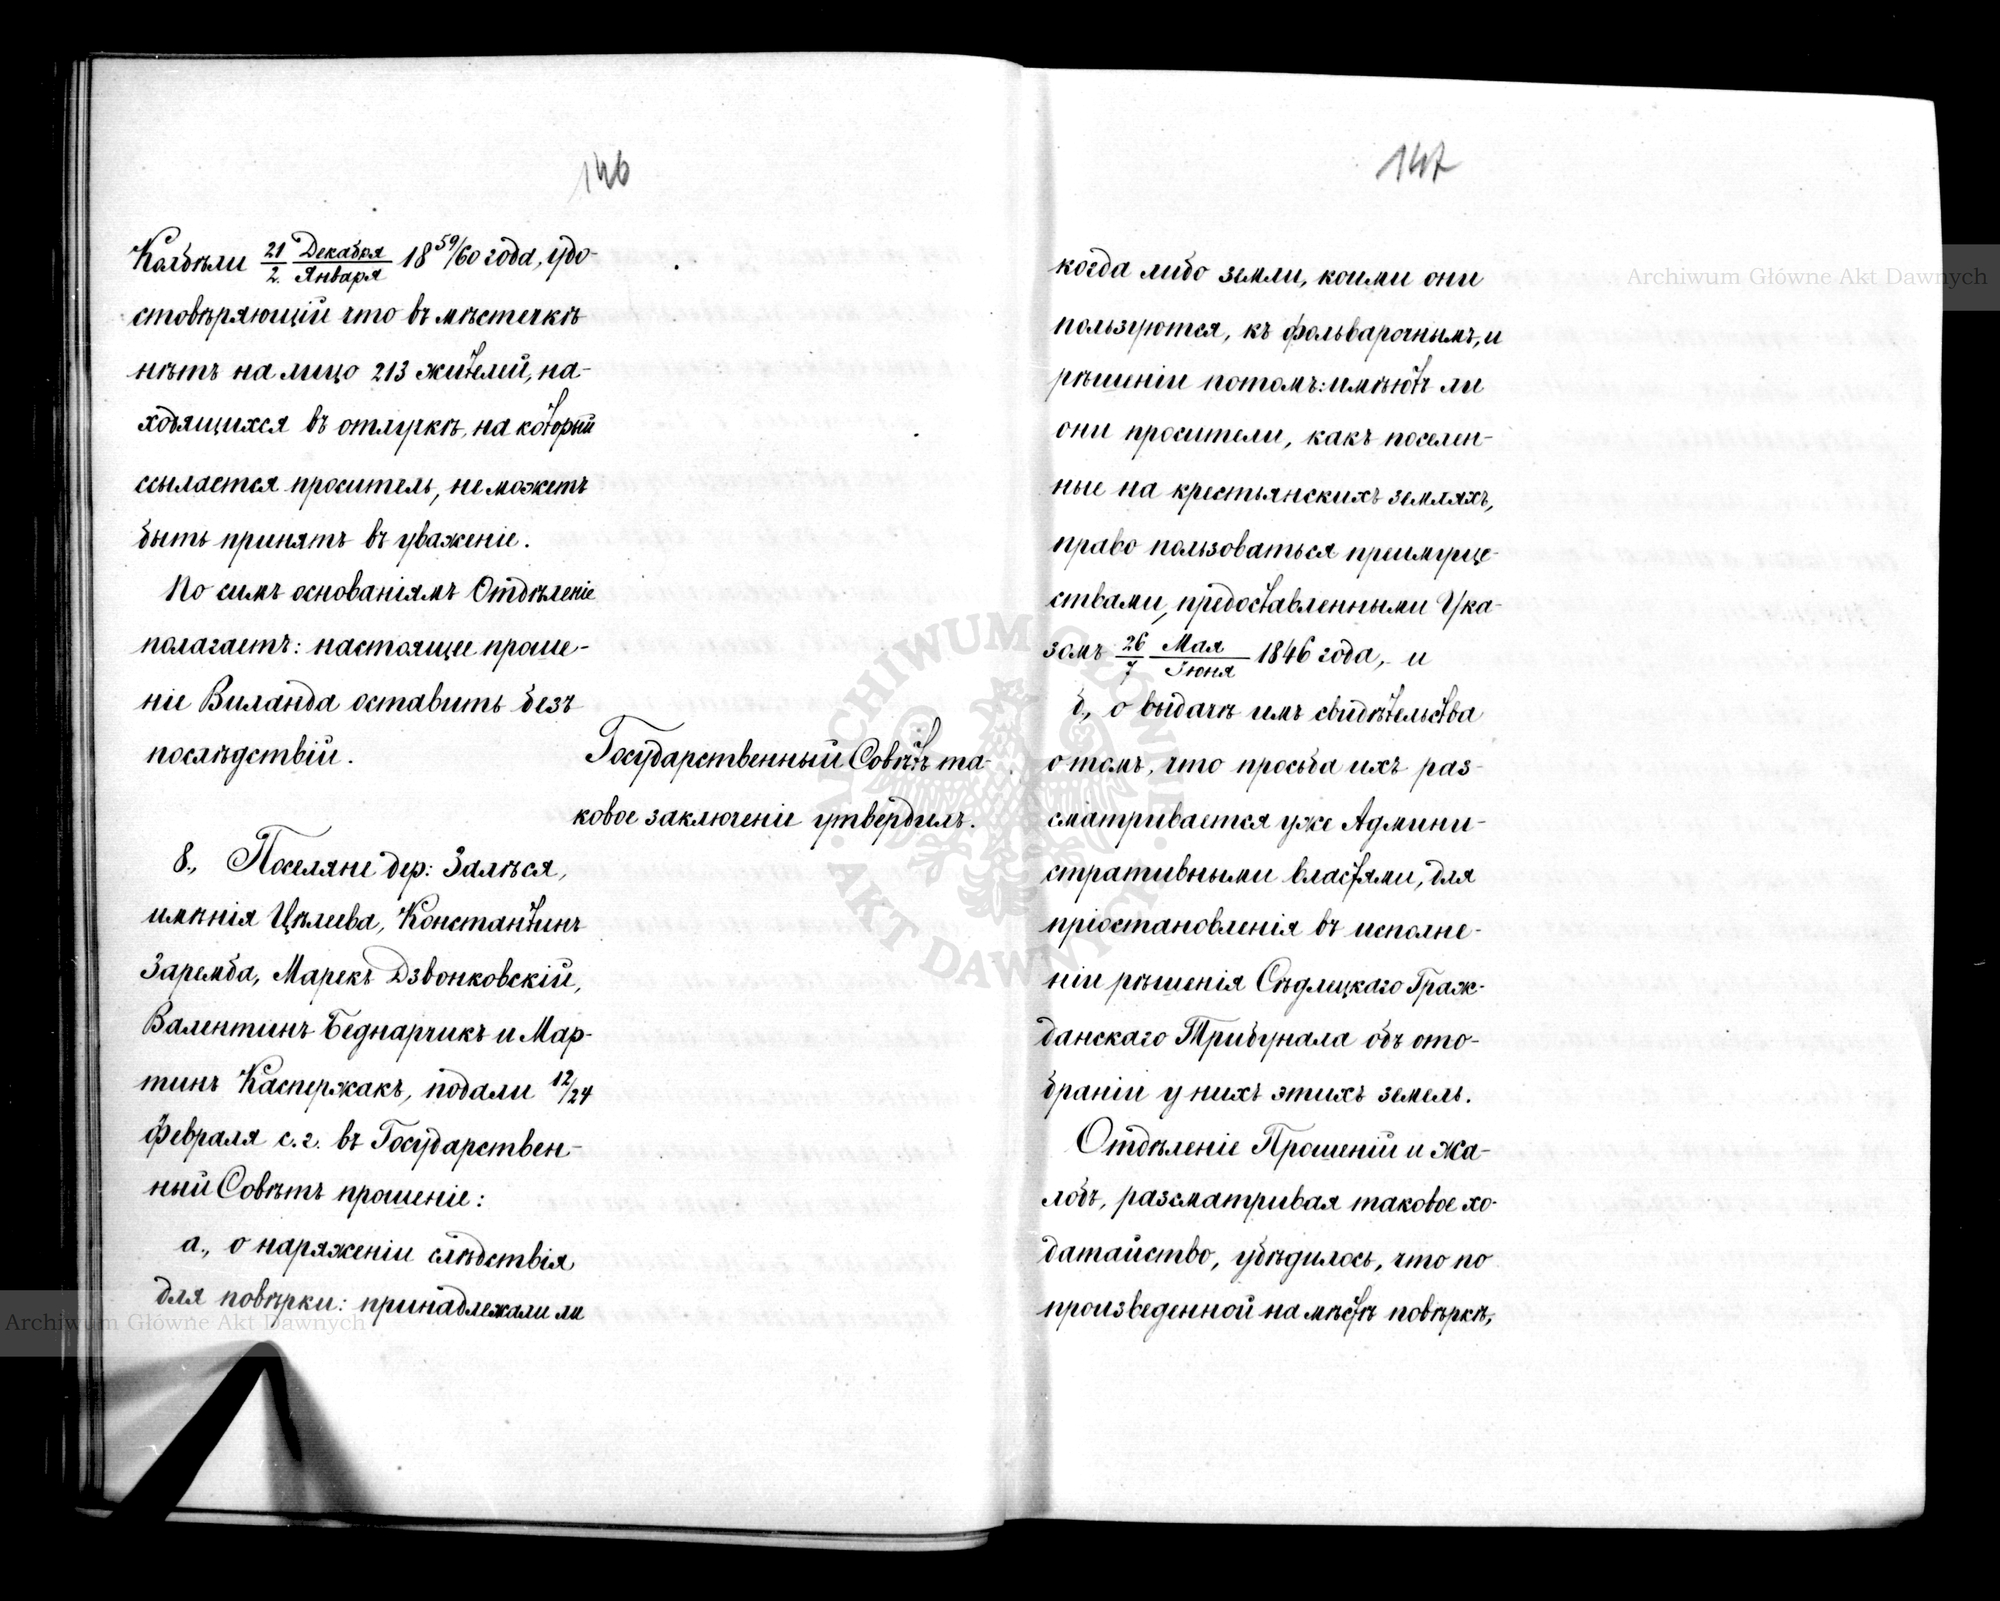 146
Колбѣли 21/2. Декабря/Января 18 59/60 года, удо-
стовѣряющій что въ мѣстечкѣ
нѣтъ на лицо 213 жителей, на-
ходящихся въ отлучкѣ, на который
ссылается проситель, не можетъ
быть принятъ въ уваженіе.
По симъ основаніямъ Отдѣленіе
полагаетъ: настоящее проше-
ніе Виланда оставить безъ
послѣдствій.
Государственный Совѣтъ та-
ковое заключеніе утвердилъ.
8., Поселяне дер: Залѣся,
имѣнія Цѣлева, Константинъ
Заремба, Марекъ Дзвонковскій,
Валентинъ Беднарчикъ и Мар-
тинъ Каспержакъ, подали 12/24
Февраля с. г. въ Государствен-
ный Совѣтъ прошеніе:
а., о наряженіи слѣдствія
для повѣрки: принадлежали ли
147
когда либо земли, коими они
пользуются, къ фольварочнымъ, и
рѣшеніи потомъ: имѣютъ ли
они просители, какъ поселен-
ные на крестьянскихъ земляхъ,
право пользоваться преимуще-
ствами, предоставленными Ука-
зомъ 26/7 Мая/Іюня 1846 года, и
б., о выдачѣ имъ свидѣтельства
о томъ, что просьба ихъ раз-
сматривается уже Админи-
стративными властями, для
пріостановленія въ исполне-
ніи рѣшенія Сѣдлецкаго Граж-
данскаго Трибунала объ ото-
браніи у нихъ этихъ земель.
Отдѣленіе Прошеній и Жа-
лобъ, разсматривая таковое хо-
датайство, убѣдилось, что по
произведенной на мѣстѣ повѣркѣ,
Archiwum Główne Akt Dawnych
Archiwum Główne Akt Dawnych
ARCHIWUM GŁÓWNE · AKT DAWNYCH ·